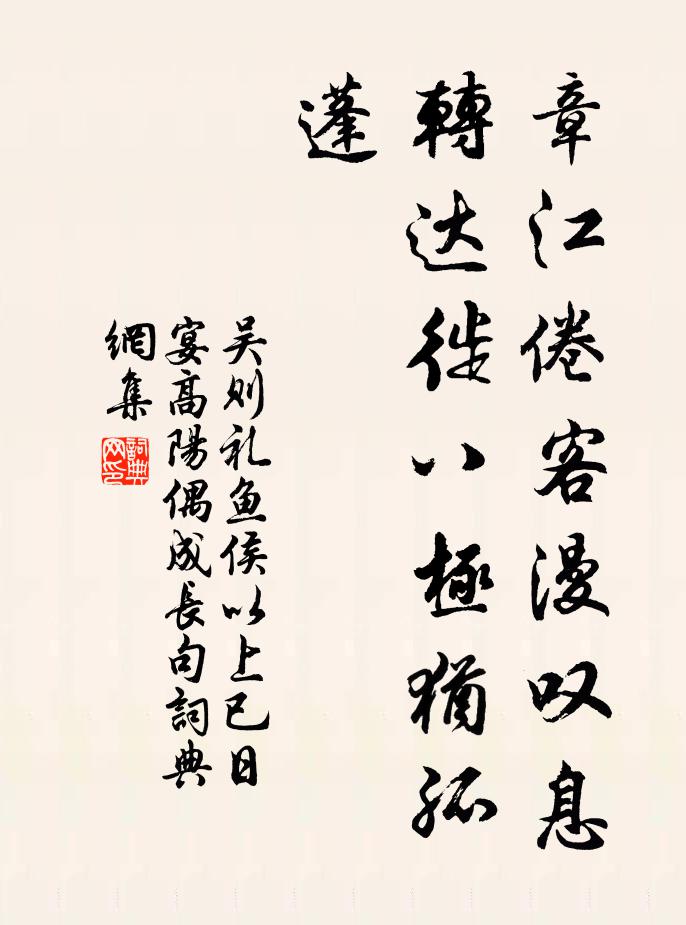 章江倦客漫叹息
轉达徙八極猶孤
蓬
吴则礼鱼侯以上巳日
宴高陽偶成長句詞典
網集
詞典
网印